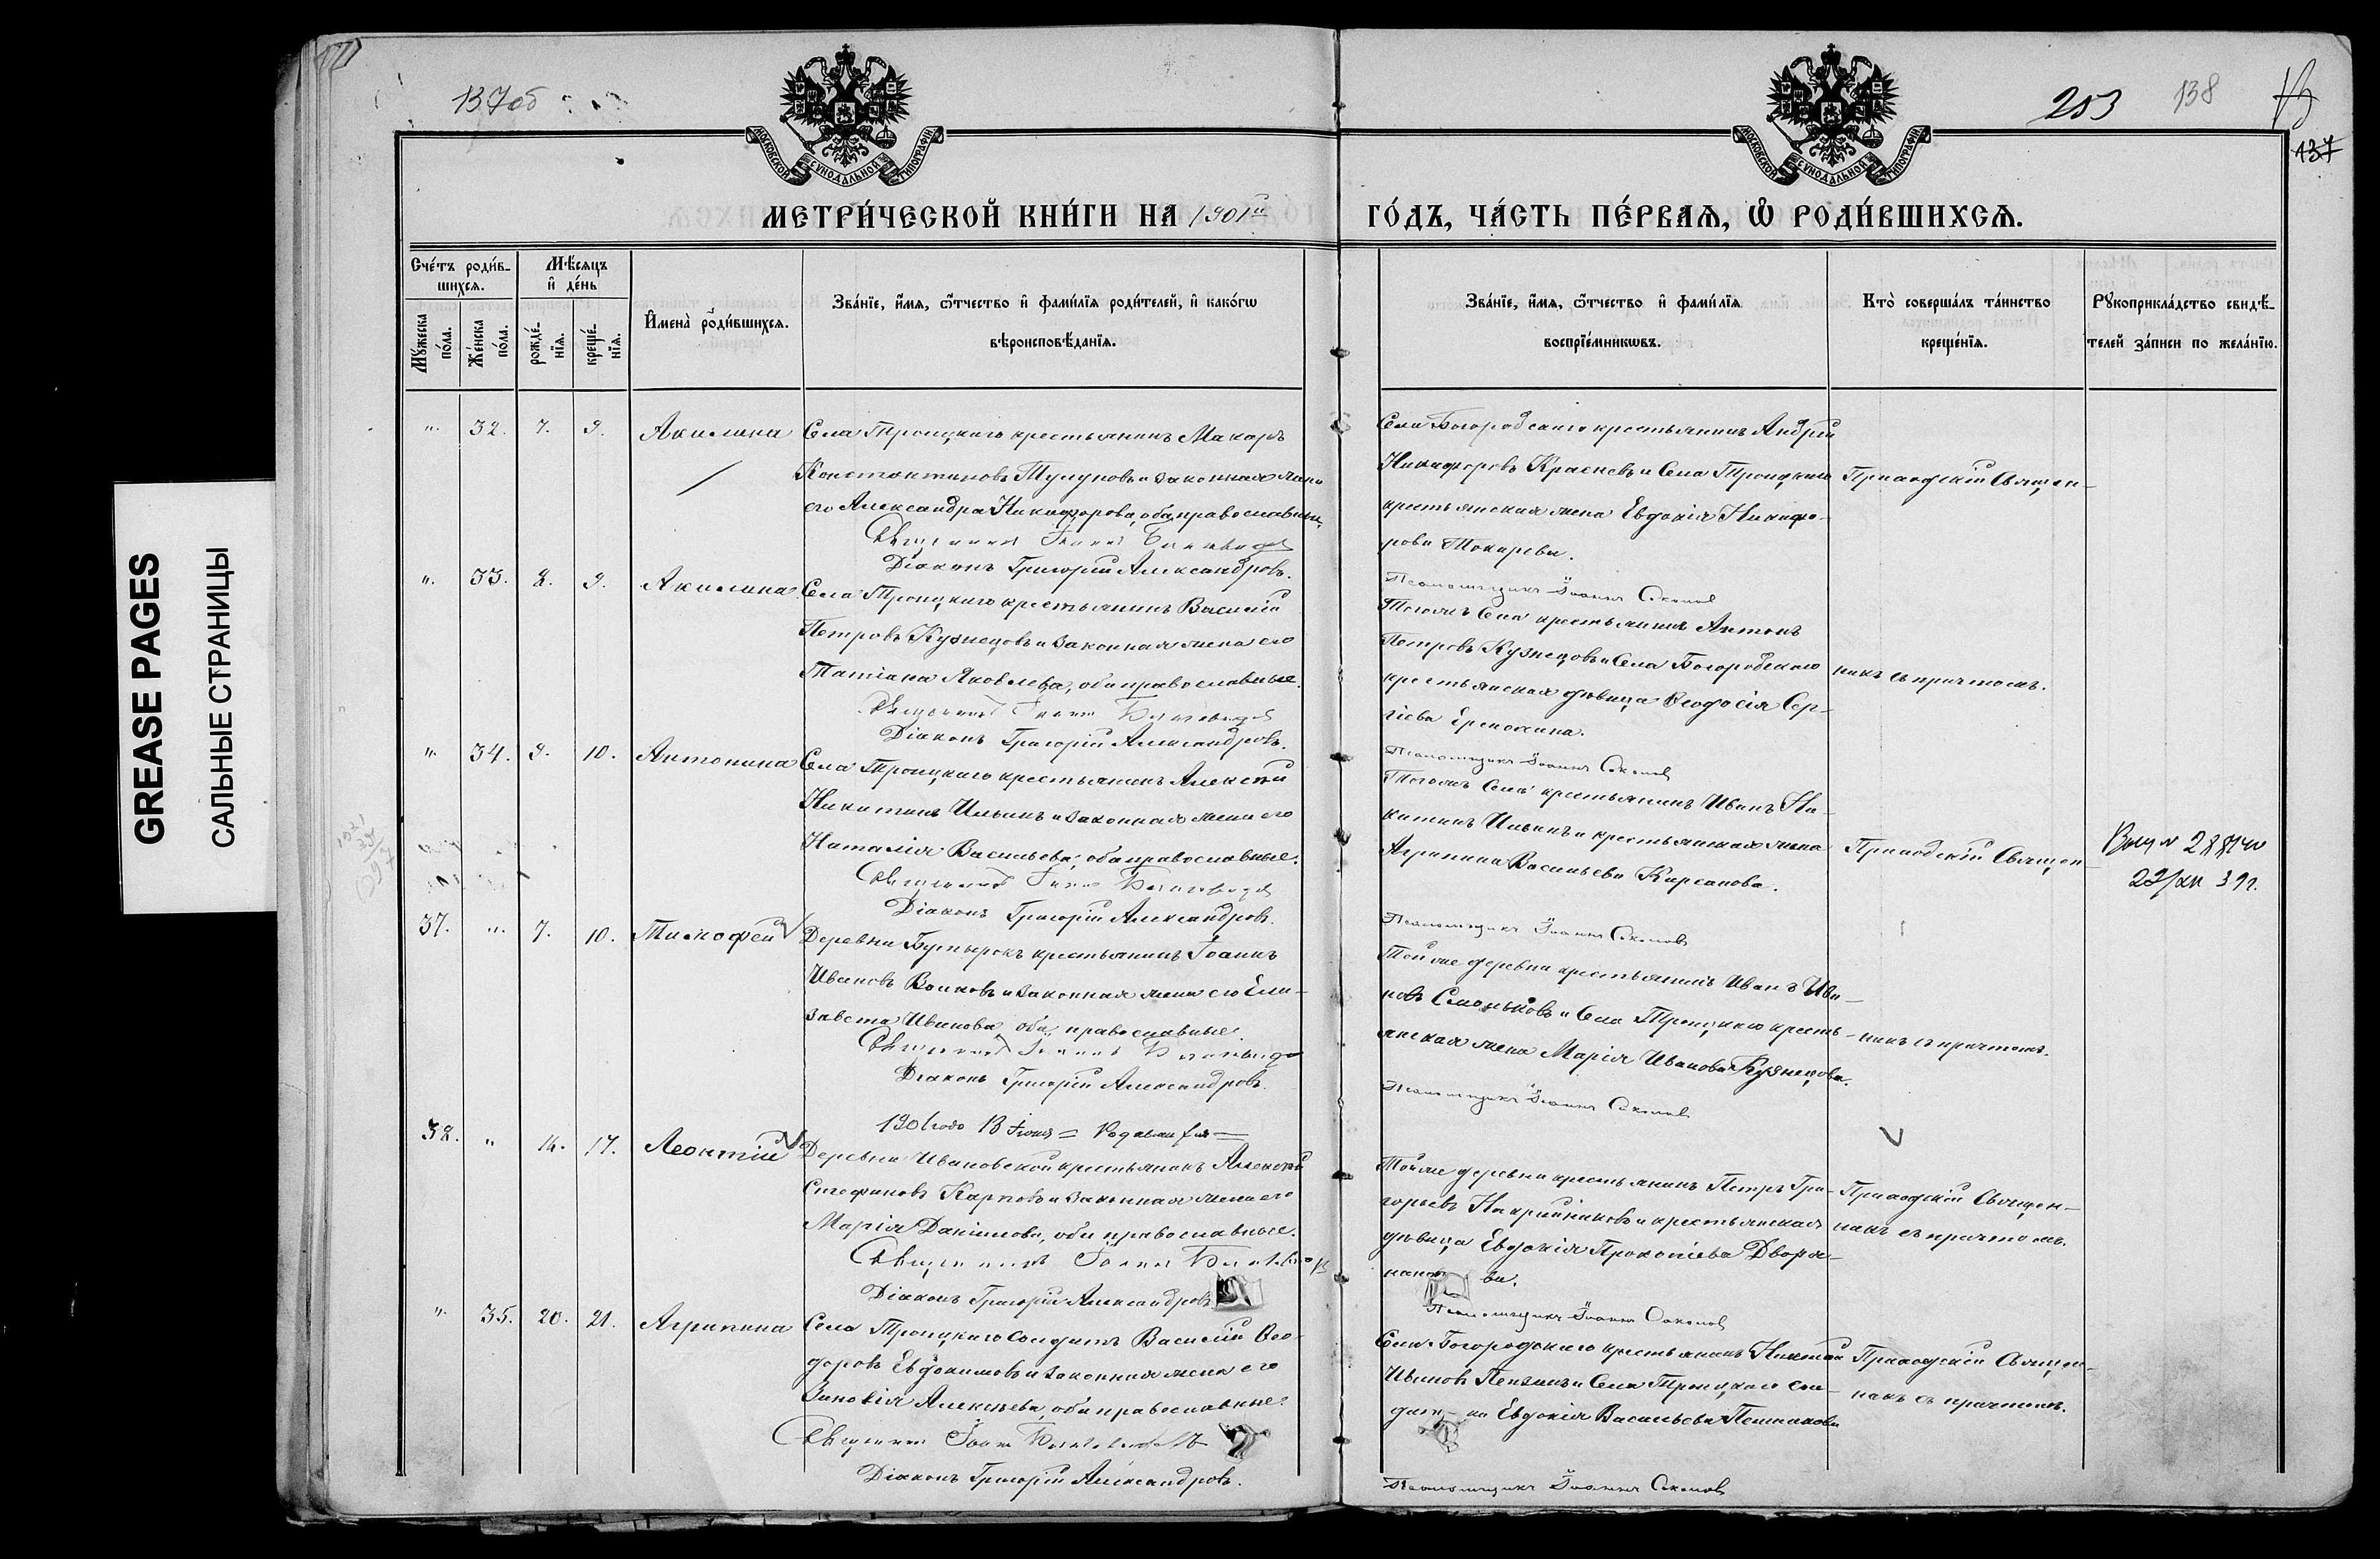 137об
203
138
137
GREASE PAGES
САЛЬНЫЕ СТРАНИЦЫ
МОСКОВСКОЙ СѴНОДАЛЬНОЙ ТИПОГРАФІИ
МОСКОВСКОЙ СѴНОДАЛЬНОЙ ТИПОГРАФІИ
МЕТРИ́ЧЕСКОЙ КНИ́ГИ НА 1901й ГО́ДЪ, ЧА́СТЬ ПЕ́РВАѦ, Ѡ҆ РОДИ́ВШИХСѦ.
Сче́тъ роди́в-
шихсѧ.
Мѣ́сѧцъ
и҆ де́нь
Мꙋ́жеска по́ла.
Же́нска по́ла.
рожде́-нїѧ.
креще́-нїѧ.
И҆мена̀ роди́вшихсѧ.
Зва́нїе, и҆́мѧ, ѻ҆́тчество и҆ фами́лїѧ роди́телей, и҆ како́гѡ
вѣроисповѣ́данїѧ.
Зва́нїе, и҆́мѧ, ѻ҆́тчество и҆ фами́лїѧ
воспрїе́мникѡвъ.
Кто̀ соверша́лъ та́инство
креще́нїѧ.
Рꙋкоприкла́дство свидѣ́-
телей за́писи по жела́нїю.
". 32. 7. 9. Акилина Села Троицкаго крестьянинъ Макаръ
Константиновъ Тулуповъ и законная жена
его Александра Никифорова, оба православные.
Священникъ Іоаннъ
Діаконъ Григорій Александровъ.
Села Богородскаго крестьянинъ Андрей
Никифоровъ Красневъ и Села Троицкаго
крестьянская жена Евдокія Никифо-
рова Токарева.
Псаломщикъ Іоаннъ Соколовъ
Приходскій Священ-
никъ съ причтомъ.
". 33. 8. 9. Акилина Села Троицкаго крестьянинъ Василій
Петровъ Кузнецовъ и законная жена его
Татіана Яковлева, оба православные.
Священникъ Іоаннъ
Діаконъ Григорій Александровъ.
Тогожъ Села крестьянинъ Антонъ
Петровъ Кузнецовъ и Села Богородскаго
крестьянская дѣвица Ѳеодосія Сер-
гіева Ермохина.
Псаломщикъ Іоаннъ Соколовъ
". 34. 9. 10. Антонина Села Троицкаго крестьянинъ Алексѣй
Никитинъ Ильинъ и законная жена его
Наталія Васильева, оба православные.
Священникъ Іоаннъ
Діаконъ Григорій Александровъ.
Тогожъ Села крестьянинъ Иванъ Ни-
китинъ Ильинъ и крестьянская жена
Агрипина Васильева Кирсанова.
Псаломщикъ Іоаннъ Соколовъ
Приходскій Священ-
никъ съ причтомъ.
37. ". 7. 10. Тимофей Деревни Бутырокъ крестьянинъ Іоаннъ
Ивановъ Волковъ и законная жена его Ели-
завета Иванова, оба православные.
Священникъ Іоаннъ
Діаконъ Григорій Александровъ.
Той же деревни крестьянинъ Иванъ Ива-
новъ и Села Троицкаго кресть-
янская жена Марія Иванова Кузнецова.
Псаломщикъ Іоаннъ Соколовъ
38. " 16. 17. Леонтій Деревни Ивановской крестьянинъ Алексѣй
Стефановъ Карповъ и законная жена его
Марія Данилова, оба православные.
Священникъ Іоаннъ
Діаконъ Григорій Александровъ.
Той же деревни крестьянинъ Петръ Гри-
горьевъ и крестьянская
дѣвица Евдокія Прокопіева
Псаломщикъ Іоаннъ Соколовъ
Приходскій Священ-
никъ съ причтомъ.
". 35. 20. 21. Агрипина Села Троицкаго солдатъ Василій Ѳео-
доровъ Евдокимовъ и законная жена его
Зиновія Алексѣева, оба православные.
Священникъ Іоаннъ
Діаконъ Григорій Александровъ.
Села Богородскаго крестьянинъ
Ивановъ и Села Троицкаго сол-
датка Евдокія Васильева
Псаломщикъ Іоаннъ Соколовъ
Приходскій Священ-
никъ съ причтомъ.